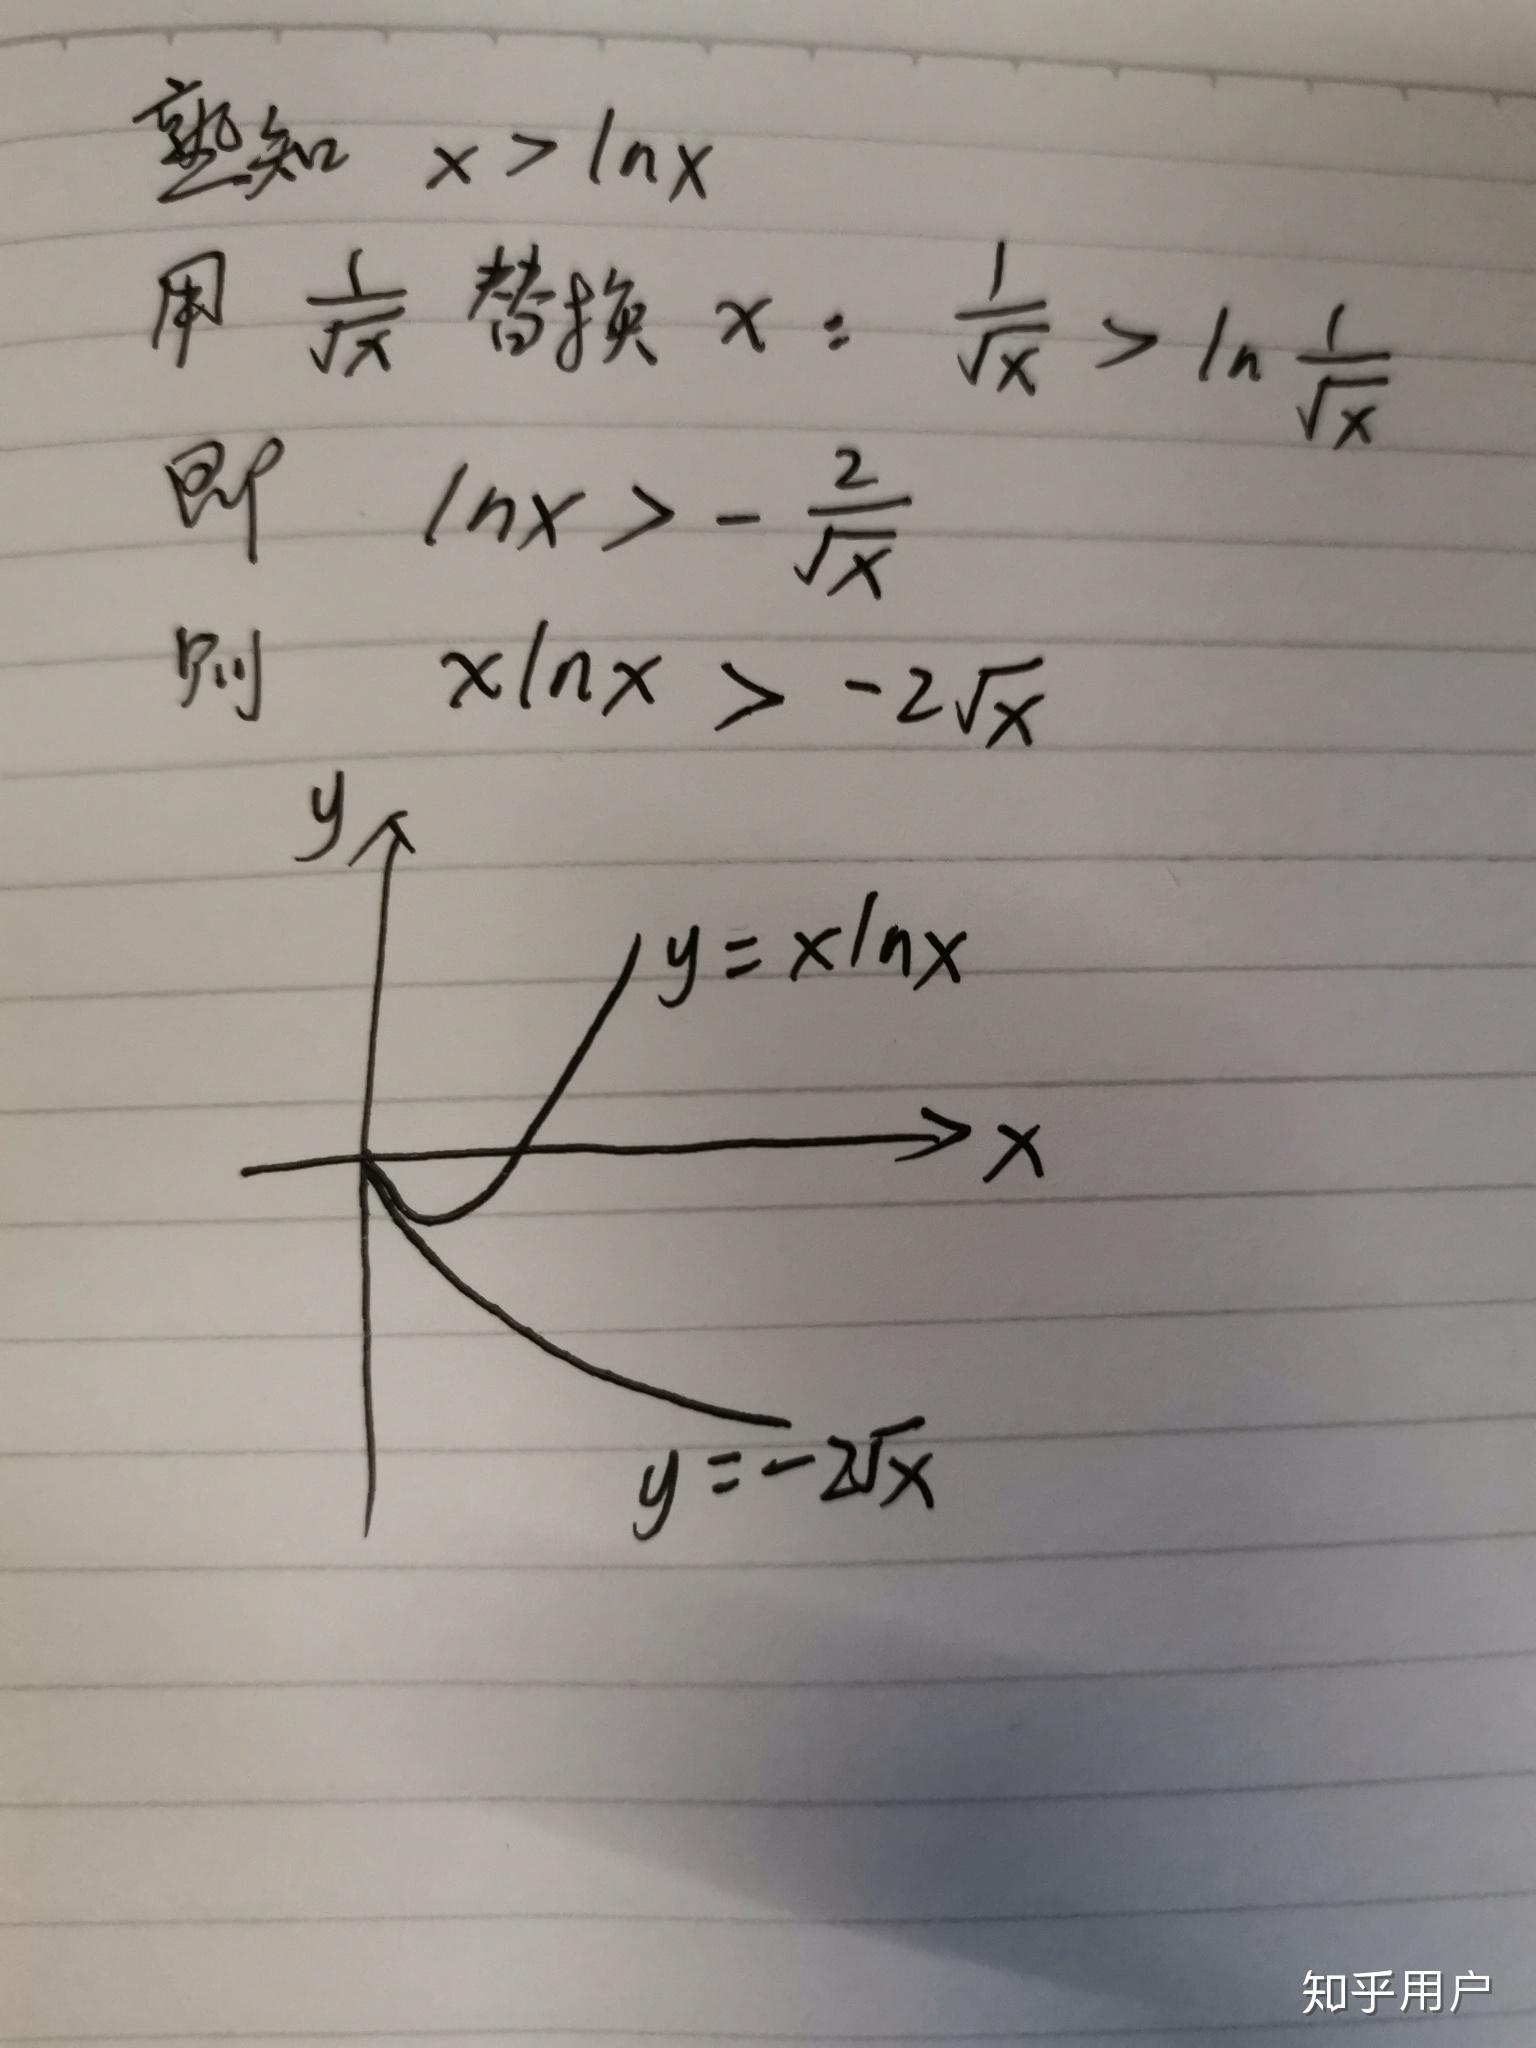 熟知 x > lnx
用 1/√x 替换 x : 1/√x > ln 1/√x
即 lnx > - 2/√x
则 xlnx > -2√x
y
y = xlnx
x
y = -2√x
知乎用户